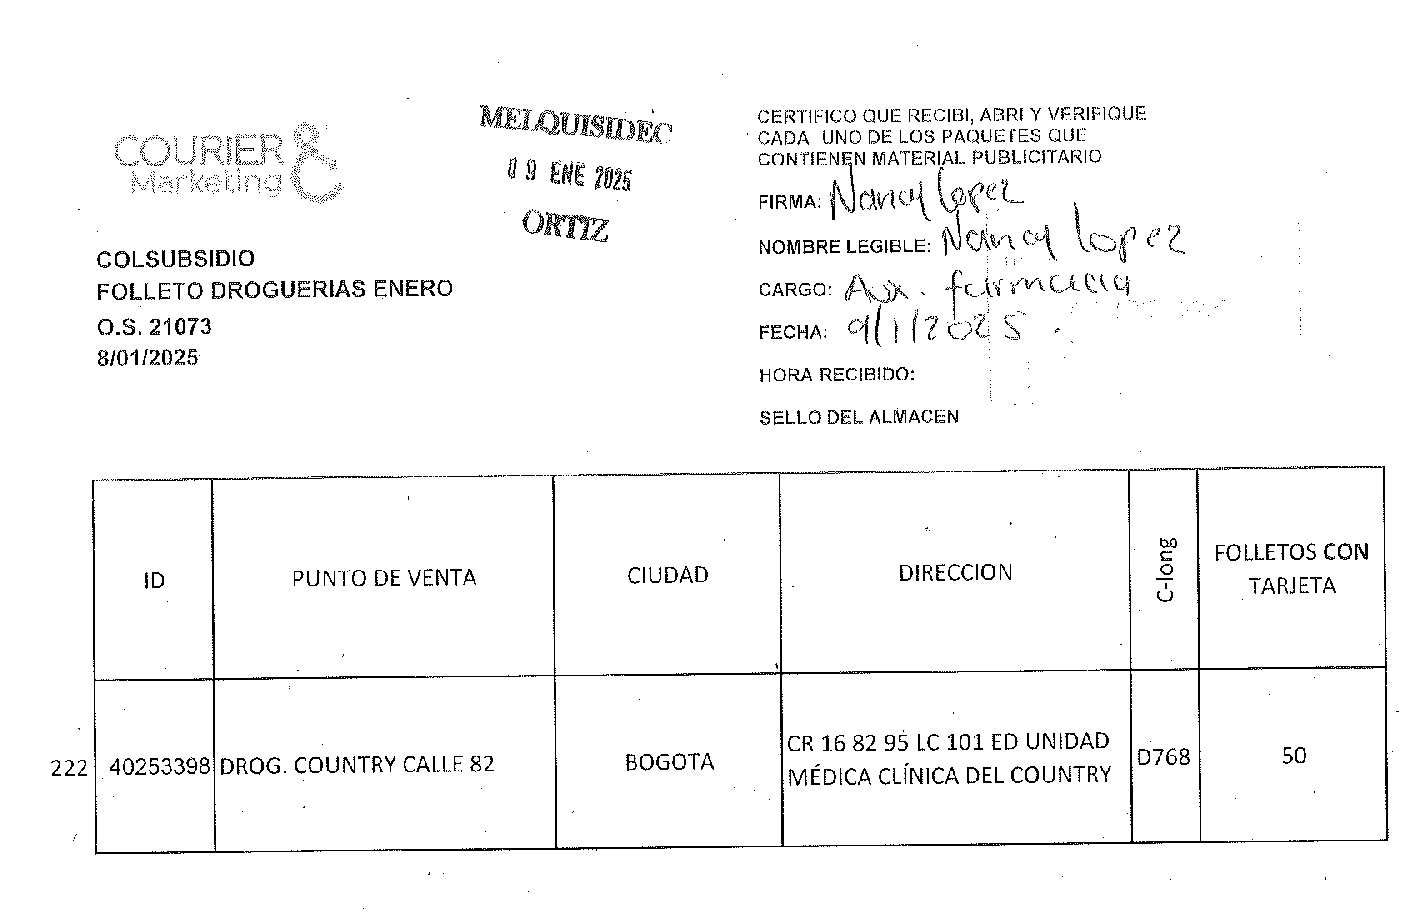 COURIER
Marketing
MELQUISIDEC
09 ENE 2025
ORTIZ
COLSUBSIDIO
FOLLETO DROGUERIAS ENERO
O.S. 21073
8/01/2025
CERTIFICO QUE RECIBI, ABRI Y VERIFIQUE
CADA UNO DE LOS PAQUETES QUE
CONTIENEN MATERIAL PUBLICITARIO
FIRMA: Nancy Lopez
NOMBRE LEGIBLE: Nancy Lopez
CARGO: Aux. farmacia
FECHA: 9/1/2025.
HORA RECIBIDO:
SELLO DEL ALMACEN
ID PUNTO DE VENTA CIUDAD DIRECCION C-long FOLLETOS CON
TARJETA
222 40253398 DROG. COUNTRY CALLE 82 BOGOTA CR 16 82 95 LC 101 ED UNIDAD
MÉDICA CLÍNICA DEL COUNTRY D768 50